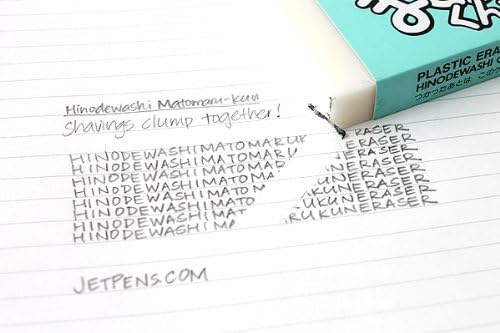 PLASTIC ERA
HINODEWASHI
つかったあとは この
Hinodewashi Matomaru-kun
Shavings clump together!
HINODEWASHIMATOMARUK ERASER
HINODEWASHIMATOMARU ERASER
HINODEWASHIMATOMAR ERASER
HINODEWASHIMATOMA NERASER
HINODEWASHIMATOM UNERASER
HINODEWASHIMATO KUNERASER
HINODEWASHIMAT UKUNERASER
HINODEWASHIMAT RUKUNERASER
JETPENS.COM